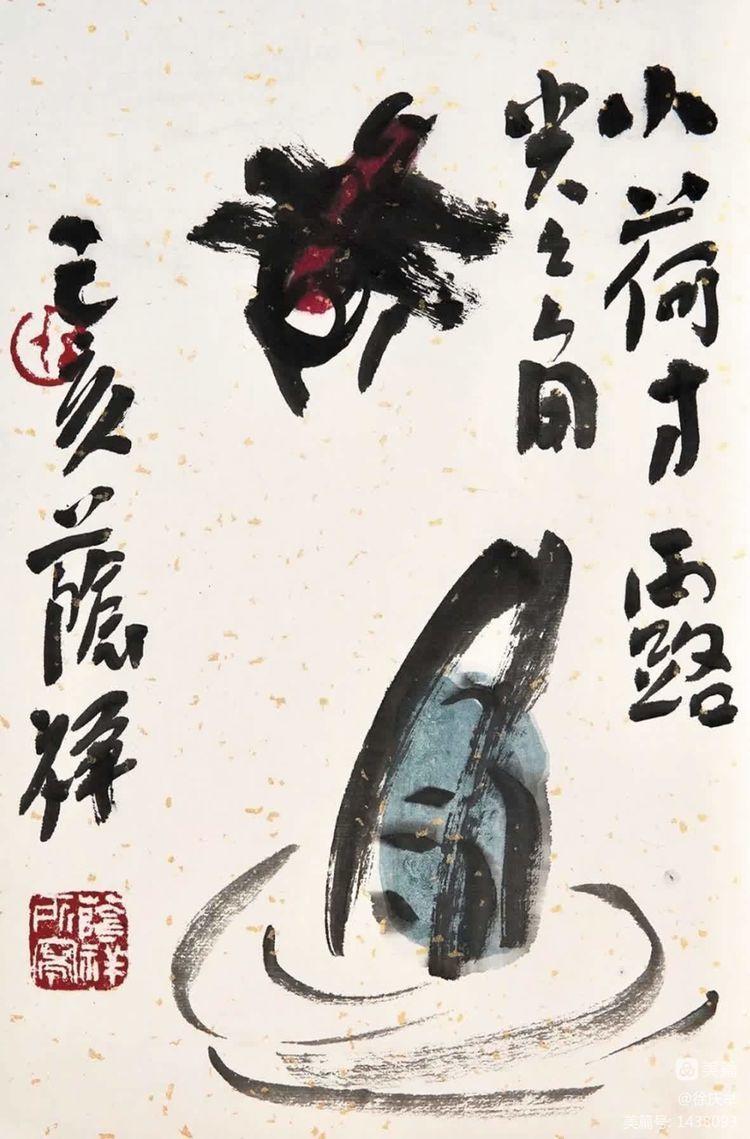 小荷才露
尖々角
己亥蔭祥
蔭祥
所寫
美篇
美篇号: 1438093